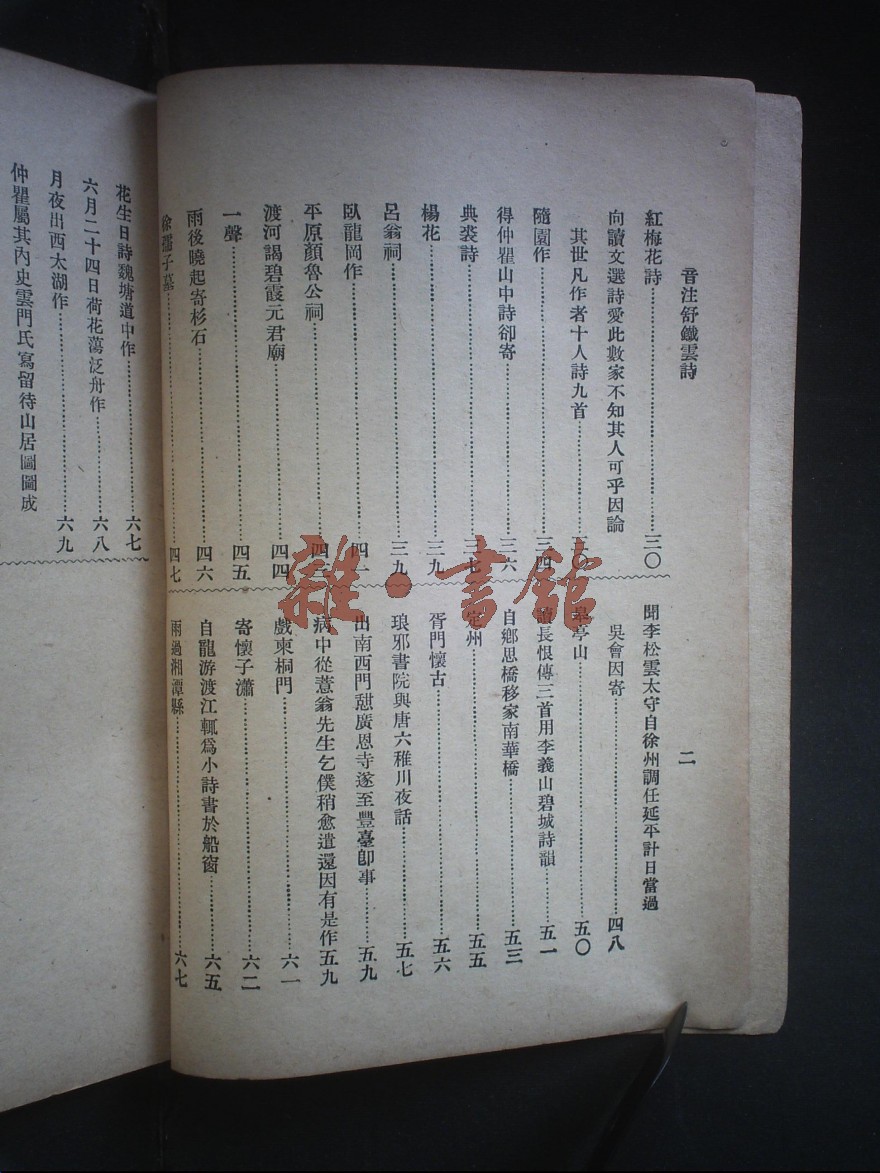 音注舒鐵雲詩
二
紅梅花詩三〇
向讀文選詩愛此數家不知其人可乎因論
其世凡作者十人詩九首三〇
隨園作三四
得仲瞿山中詩卻寄三六
典裘詩三七
楊花三九
呂翁祠三九
臥龍岡作四一
平原顏魯公祠四二
渡河謁碧霞元君廟四四
一聲四五
雨後曉起寄杉石四六
徐孺子墓四七
聞李松雲太守自徐州調任延平計日當過
吳會因寄四八
皋亭山五〇
讀長恨傳三首用李義山碧城詩韻五一
自鄉思橋移家南華橋五三
定州五五
胥門懷古五六
琅邪書院與唐六稚川夜話五七
出南西門憩廣恩寺遂至豐臺卽事五九
病中從薏翁先生乞僕稍愈遣還因有是作五九
戲柬桐門六一
寄懷子瀟六二
自龍游渡江輒爲小詩書於船窗六五
雨過湘潭縣六七
花生日詩魏塘道中作六七
六月二十四日荷花蕩泛舟作六八
月夜出西太湖作六九
仲瞿屬其內史雲門氏寫留待山居圖圖成
雜·書館